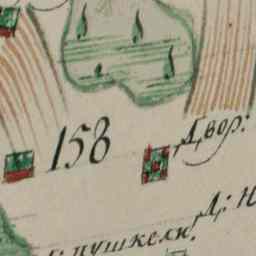 158
Двор:
Д: Н
пушкели.